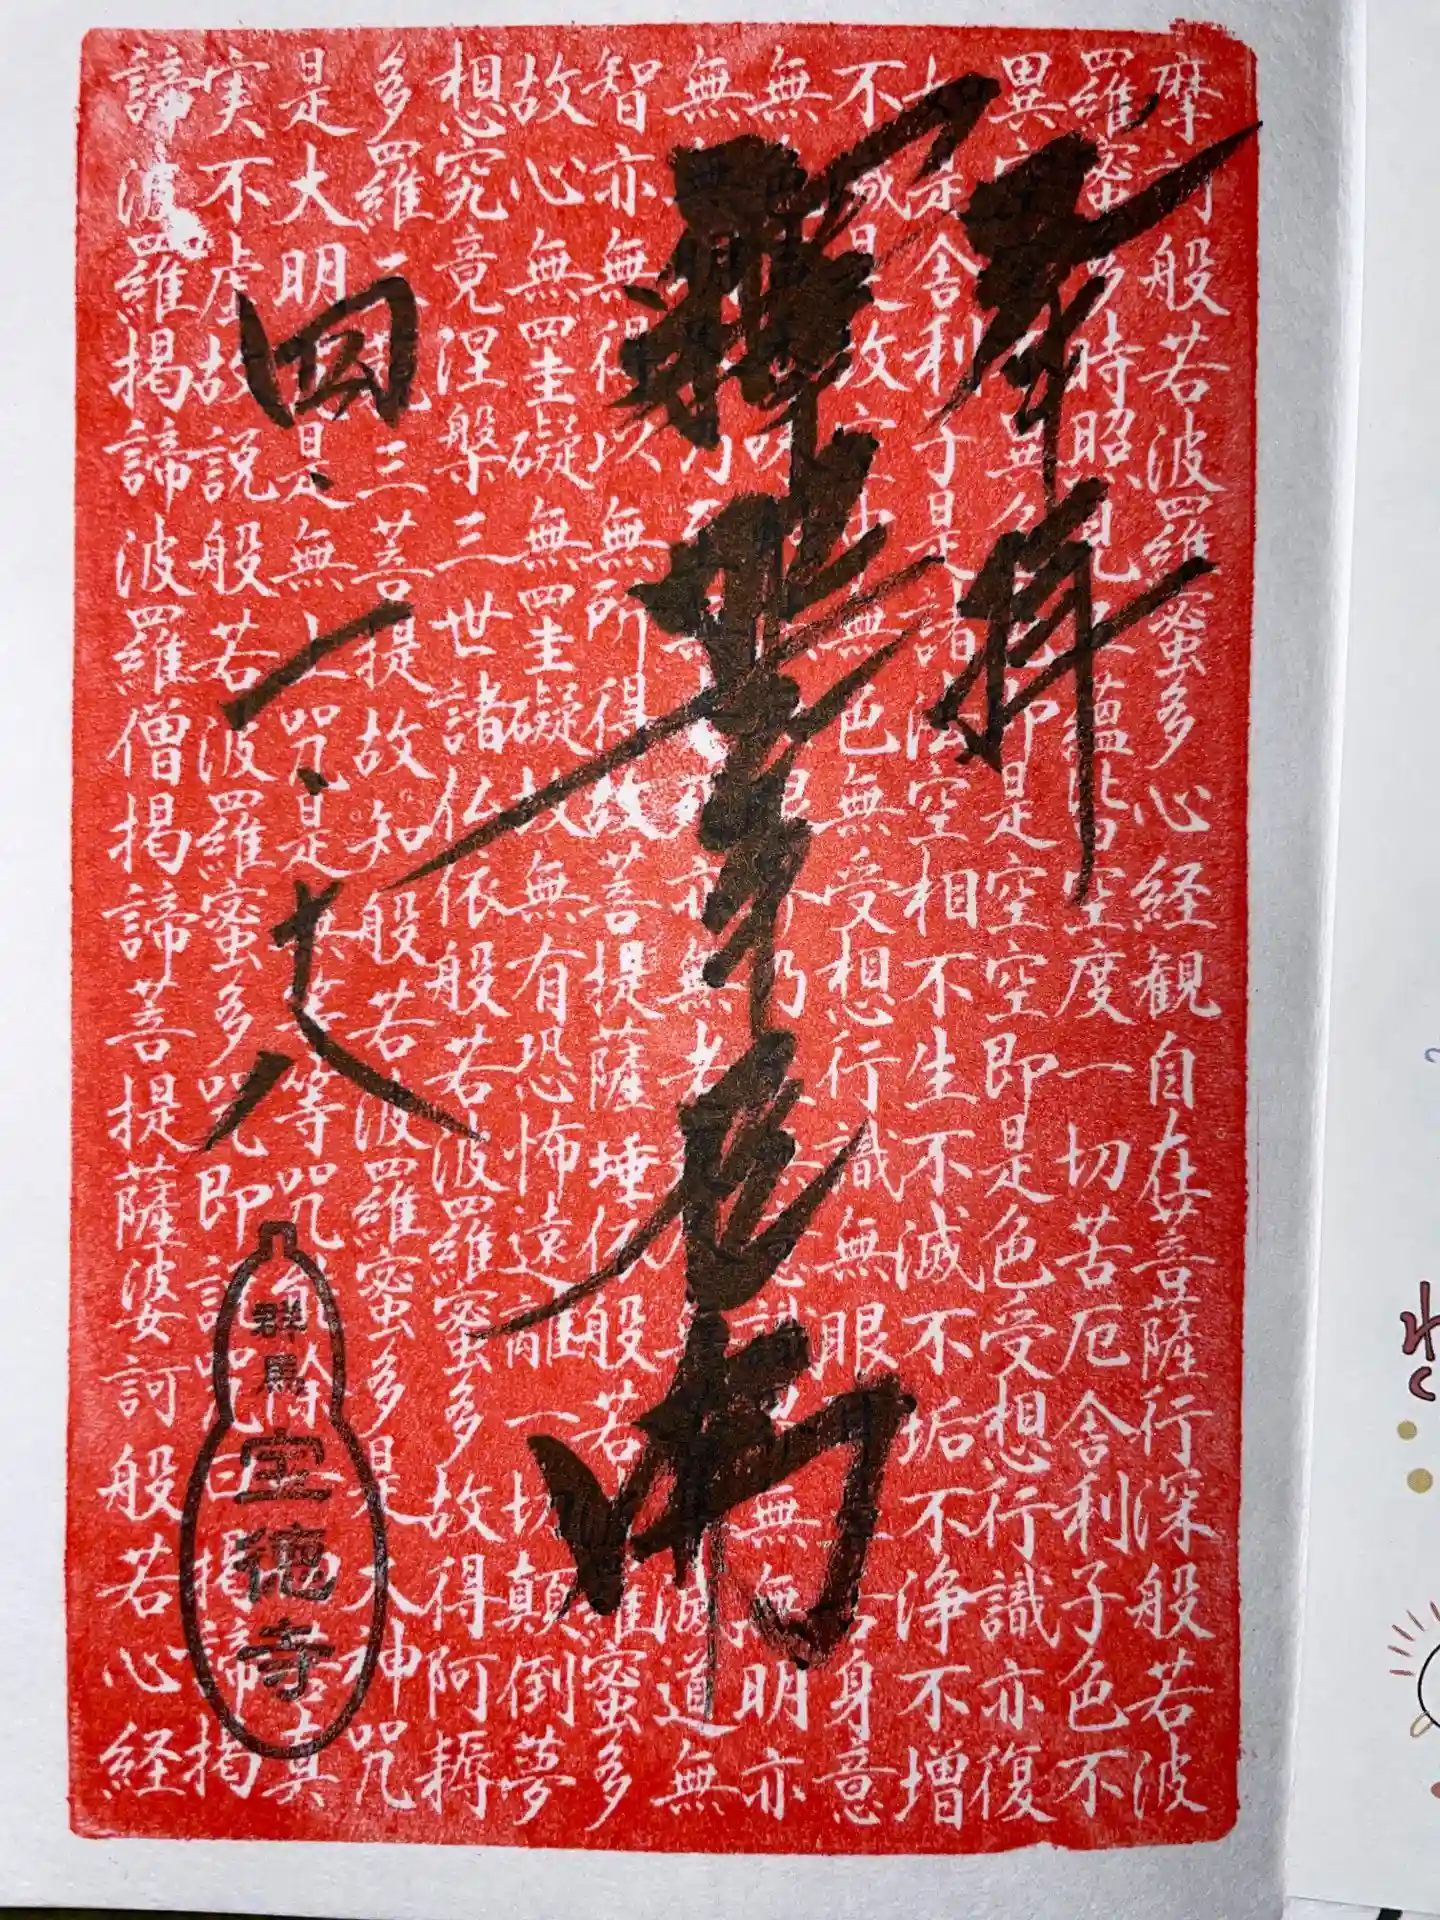 奉拝
釋迦牟尼佛
四、一、十八
群馬
宝徳寺
摩訶般若波羅蜜多心経観自在菩薩行深般若波
羅蜜多時照見五蘊皆空度一切苦厄舎利子色不
異空色即是空空即是色受想行識亦復
如是舎利子是諸法空相不生不滅不垢不浄不増
不減是故空中無色無受想行識無眼耳鼻舌身意
無界乃至無意識界無無明亦
無亦無老死尽無苦集滅道無
智亦無得以無所得故菩提薩埵依般若波羅蜜多
故心無罣礙無罣礙故無有恐怖遠離一切顛倒夢
想究竟涅槃三世諸仏依般若波羅蜜多故得阿耨
多羅三藐三菩提故知般若波羅蜜多是大神咒
是大明咒是無上咒是無等等咒能除一切苦真
実不虚故説般若波羅蜜多咒即説咒曰掲諦掲
諦波羅掲諦波羅僧掲諦菩提薩婆訶般若心経